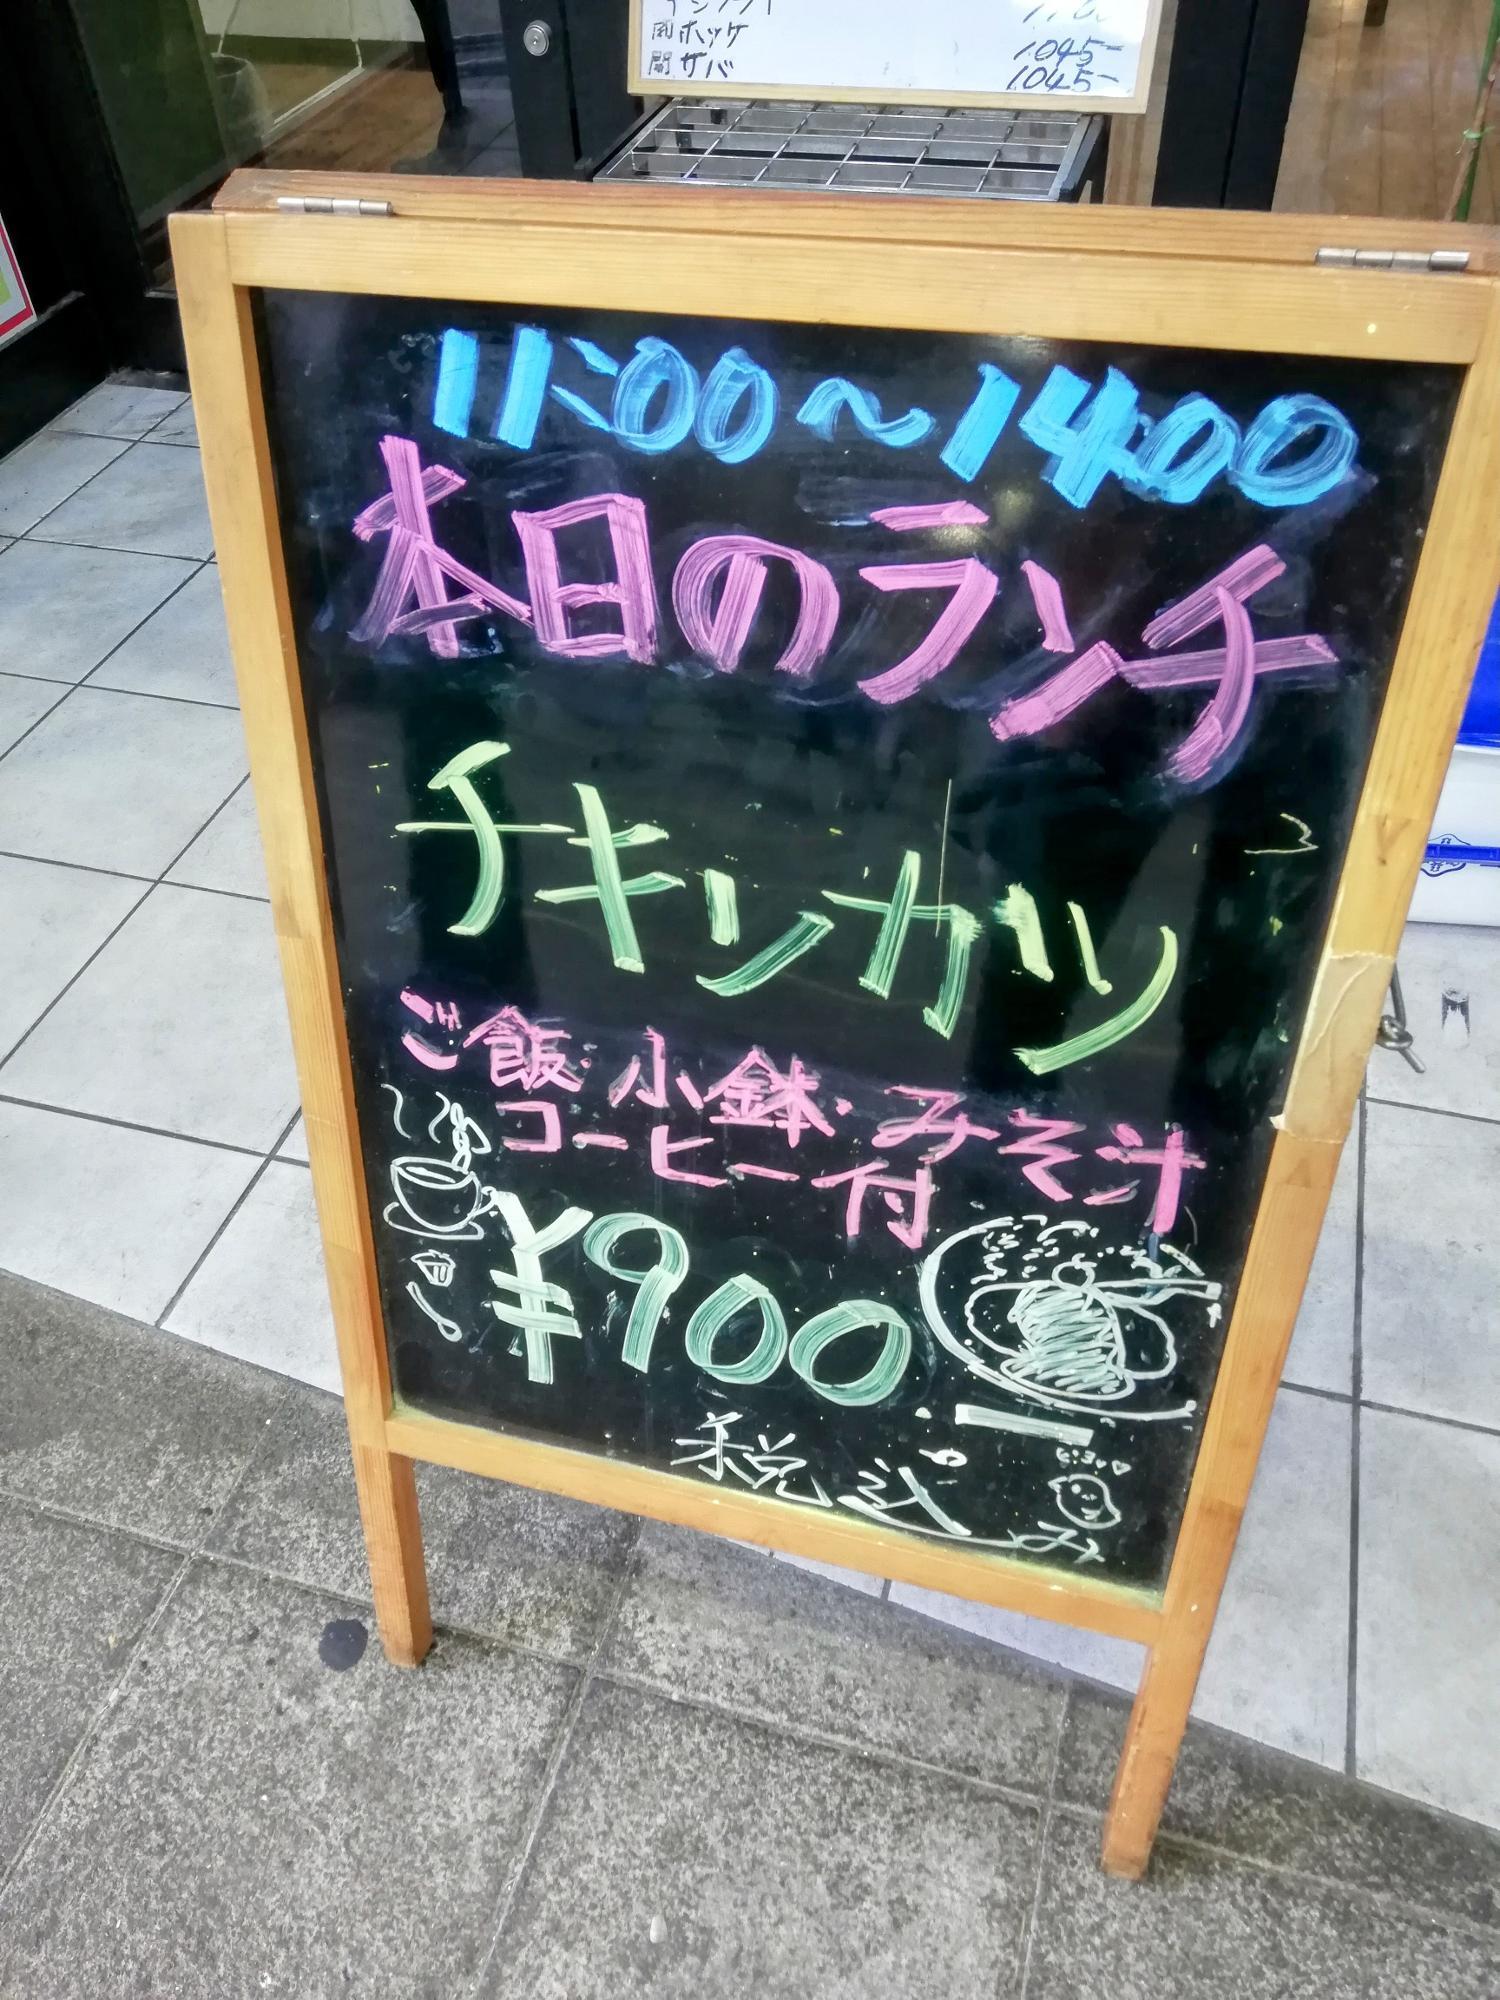 開ホッケ 1045-
開サバ 1045-
11:00～14:00
本日のランチ
チキンカツ
ご飯・小鉢・みそ汁
コーヒー付
¥900
税込み